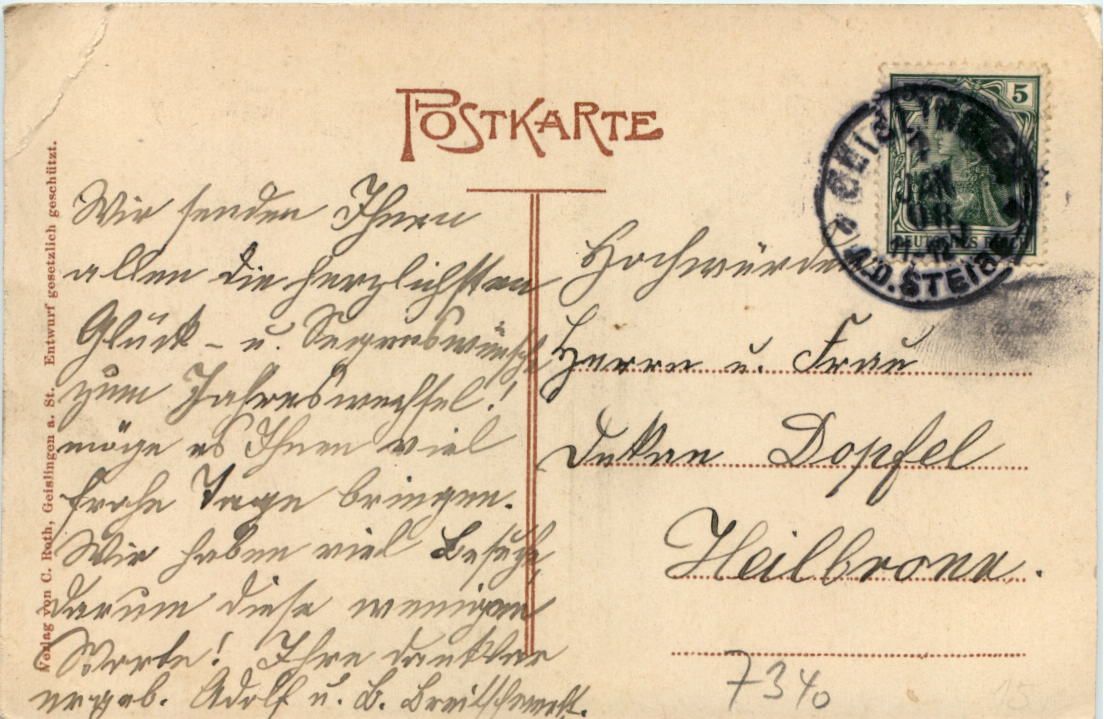 POSTKARTE
5
DEUTSCHES REICH
GEISLINGEN
JAN
08
A.D. STEIG
Verlag von C. Roth, Geislingen a. St. Entwurf gesetzlich geschützt.
Wir senden Ihnen
allen die herzlichsten
Glück- u. Segenswünsche
zum Jahreswechsel!
möge es Ihnen viel
frohe Tage bringen.
Wir haben viel Besuch,
darum diese wenigen
Worte! Ihre dankbar
ergeb. Adolf u. B.
Hochwürden
Herrn u. Frau
Dekan Dopfel
Heilbronn.
7340
15